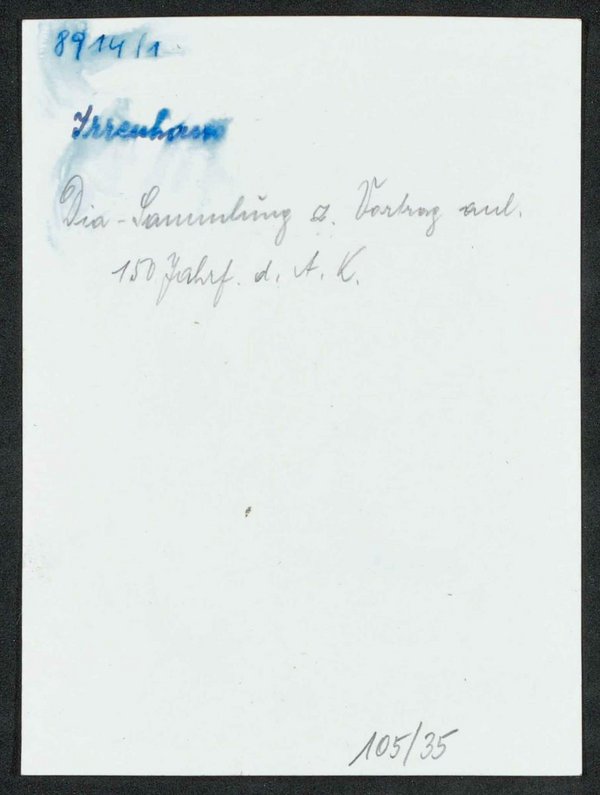 8914/1
Irrenhaus
Dia-Sammlung z. Vortrag anl.
150 Jahrf. d. A. K.
105/35